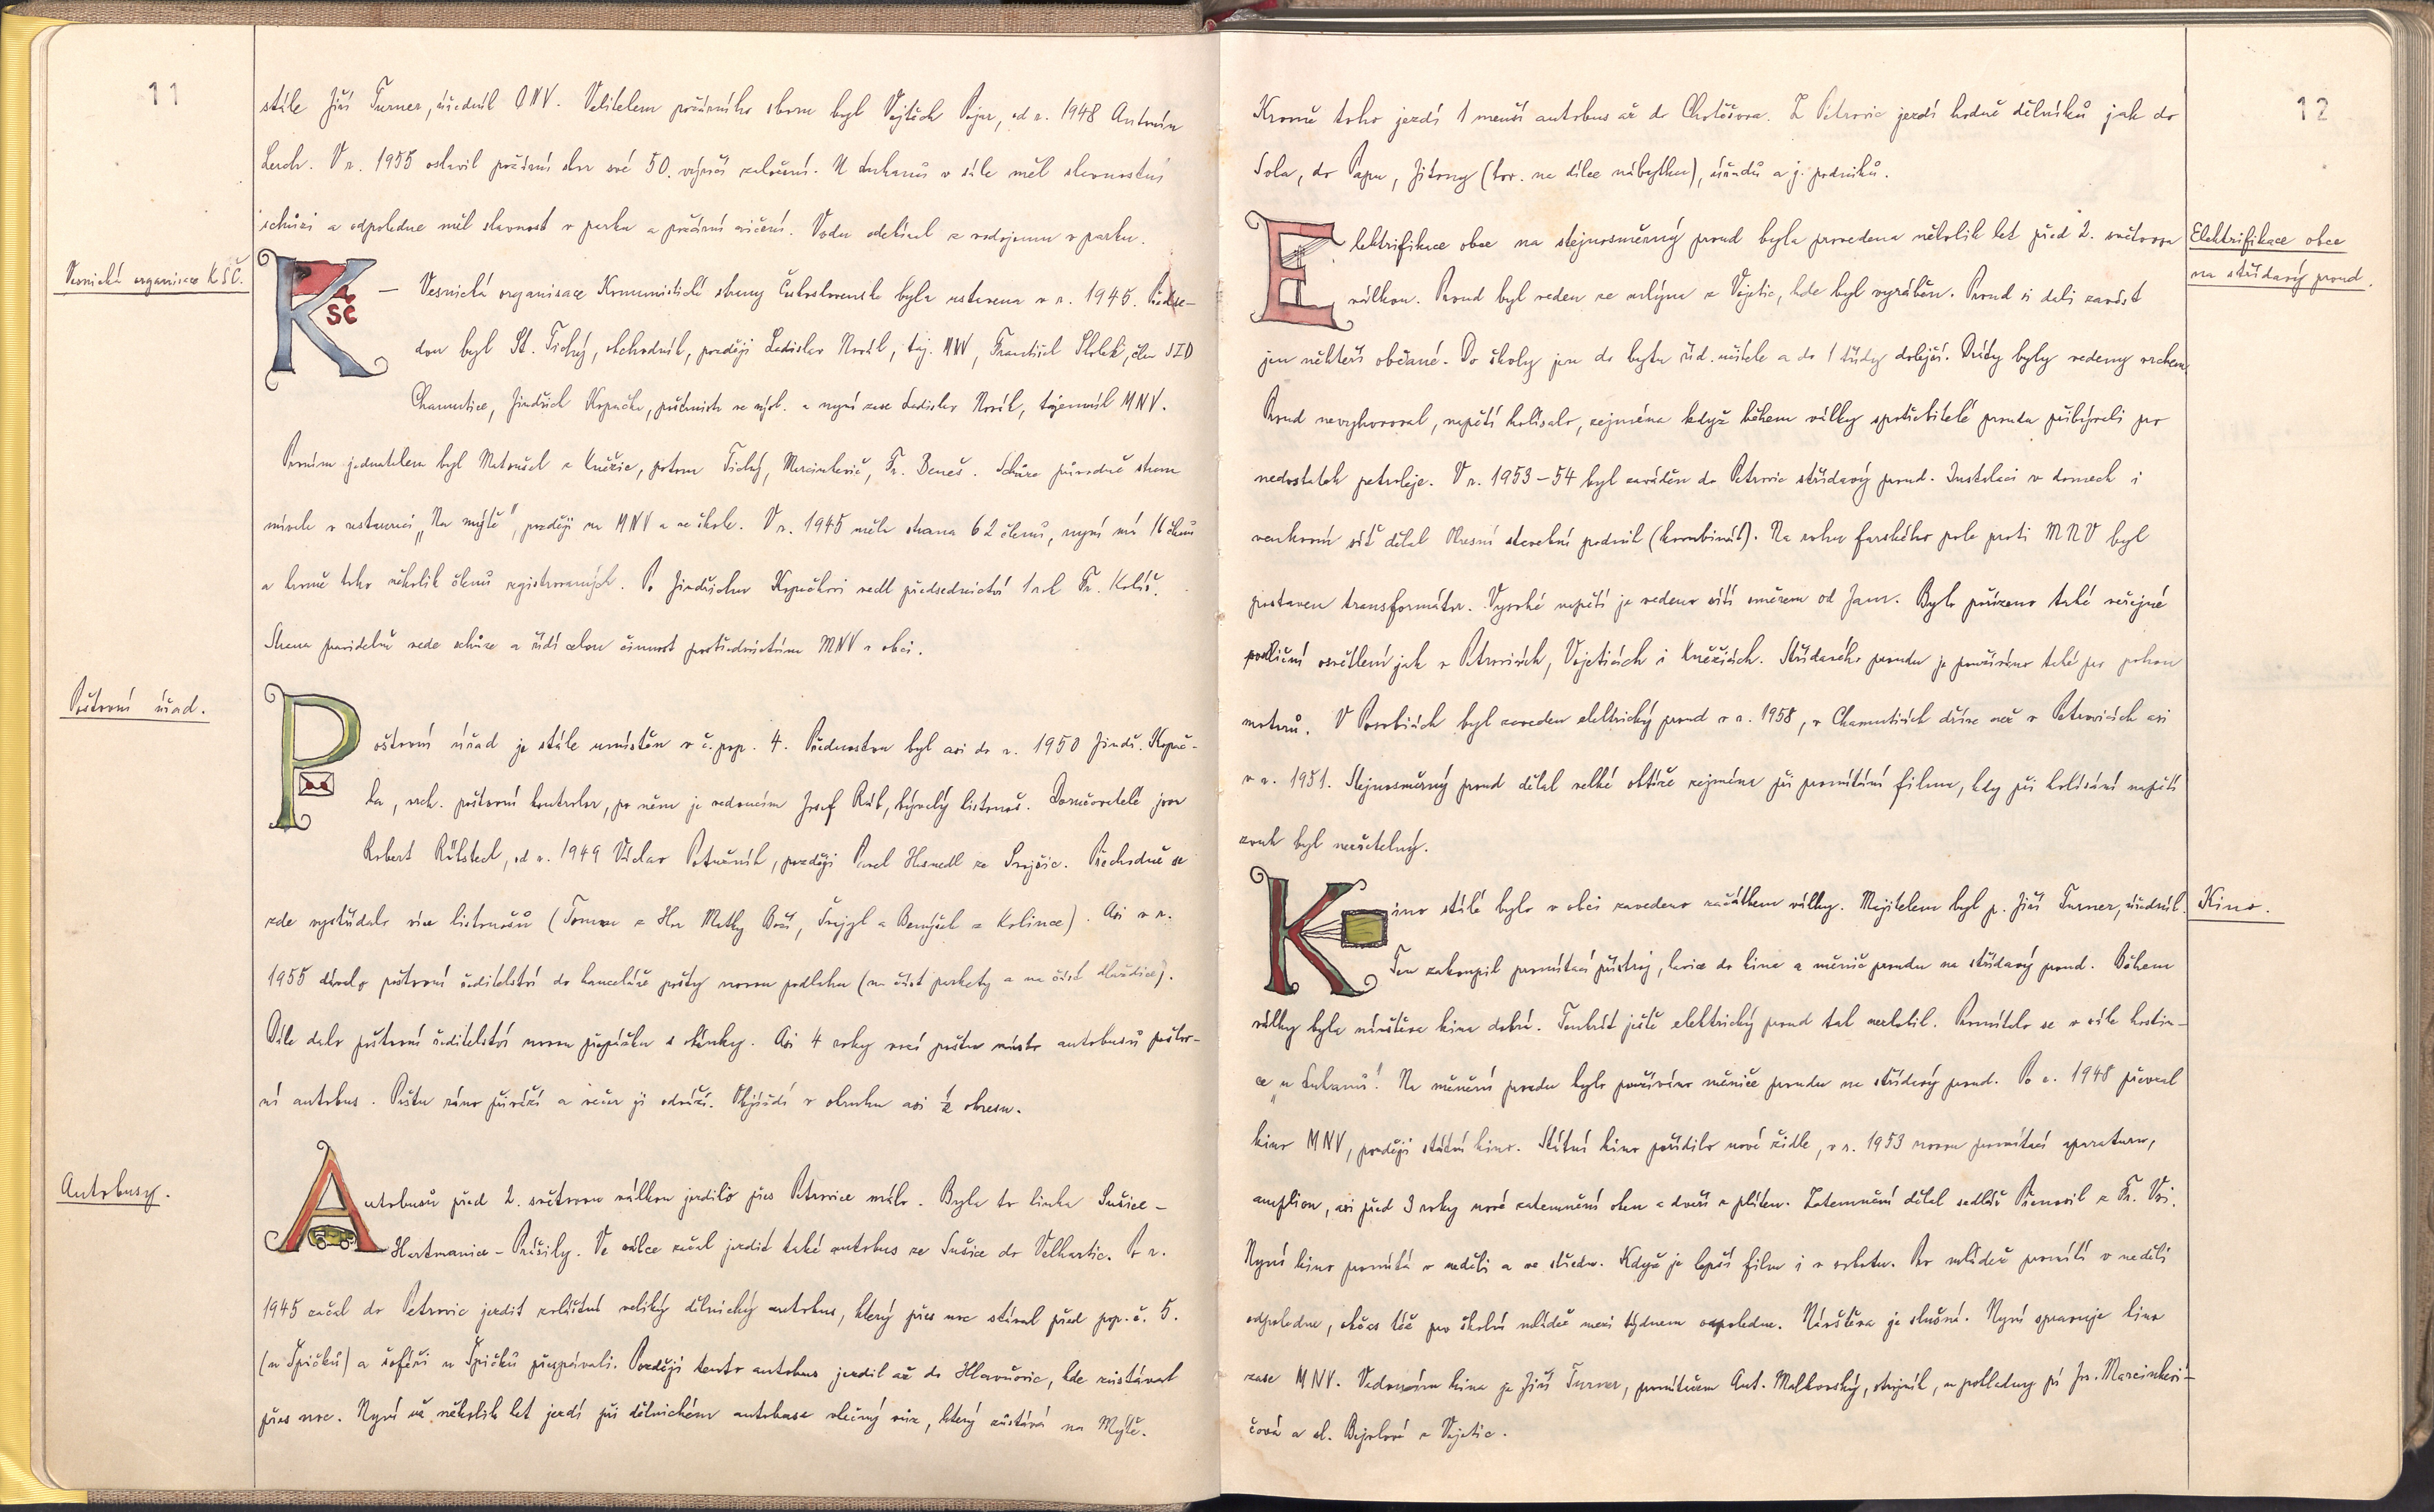 11
stále Jiří Turner, úředník ONV. Velitelem požárního sboru byl Vojtěch Pajer, od r. 1948 Antonín
Lerch. V r. 1955 oslavil požární sbor své 50. výročí založení. U Lukanů v sále měl slavnostní
schůzi a odpoledne měl slavnost v parku a požární cvičení. Vodu odebíral z vodojemu v parku.
Vesnická organisace KSČ.
KSČ – Vesnická organisace Komunistické strany Československa byla ustavena v r. 1945. Předse-
dou byl St. Tichý, obchodník, později Ladislav Novák, taj. MNV, František Skolek, člen JZD
Chamutice, Jindřich Kopačka, pošmistr ve výsl. a nyní zase Ladislav Novák, tajemník MNV.
Prvním jednatelem byl Matoušek z Kněžic, potom Tichý, Marcinkovič, Fr. Beneš. Schůze původně strana
mívala v restauraci „Na mýtě", později na MNV a ve škole. V r. 1945 měla strana 62 členů, nyní má 16 členů
a kromě toho několik členů registrovaných. Po Jindřichu Kopačkovi vedl předsednictví 1 rok Fr. Kolář.
Strana pravidelně vede schůze a řídí celou činnost prostřednictvím MNV v obci.
Poštovní úřad.
Poštovní úřad je stále umístěn v č. pop. 4. Přednostou byl asi do r. 1950 Jindř. Kopač-
ka, vrch. poštovní kontrolor, po něm je vedoucím Josef Rub, bývalý listonoš. Doručovatelé jsou
Robert Rülsteck, od r. 1949 Václav Potužník, později Pavel Hasnedl ze Svojšic. Přechodně se
zde vystřídalo více listonošů (Toman z Hor Matky Boží, Trejzl a Benýšek z Kolince). Asi v r.
1955 dávalo poštovní ředitelství do kanceláře pošty novou podlahu (na část parkety a na část dlaždice).
Dále dalo poštovní ředitelství novou přepážku s okénky. Asi 4 roky vozí poštu místo autobusů poštov-
ní autobus. Poštu ráno přiváží a večer ji odváží. Objíždí v okruhu asi ½ okresu.
Autobusy.
Autobusů před 2. světovou válkou jezdilo přes Petrovice málo. Byla to linka Sušice –
Hartmanice – Prášily. Ve válce začal jezdit také autobus ze Sušice do Velhartic. Po r.
1945 začal do Petrovic jezdit zvláštní veliký dělnický autobus, který přes noc stával před pop. č. 5.
(u Špičků) a šoféři u Špičků přespávali. Později tento autobus jezdil až do Hlavňovic, kde zůstával
přes noc. Nyní už několik let jezdí při dělnickém autobuse vlečný vůz, který zůstává na Mýtě.
12
Kromě toho jezdí 1 menší autobus až do Chotěšova. Z Petrovic jezdí hodně dělníků jak do
Sola, do Papu, Jitony (tov. na dílce nábytku), úřadů a j. podniků.
Elektrifikace obce
na střídavý proud.
Elektrifikace obce na stejnosměrný proud byla provedena několik let před 2. světovou
válkou. Proud byl veden ze mlýna z Vojetic, kde byl vyráběn. Proud si dali zavést
jen někteří občané. Do školy jen do bytu říd. učitele a do 1 třídy dolejší. Dráty byly vedeny vrchem.
Proud nevyhovoval, napětí kolísalo, zejména když během války spotřebitelé proudu přibývali pro
nedostatek petroleje. V r. 1953–54 byl zaváděn do Petrovic střídavý proud. Instalaci v domech i
venkovní síť dělal Okresní stavební podnik (kombinát). Na rohu farského pole proti MNV byl
postaven transformátor. Vysoké napětí je vedeno sítí směrem od Janv. Bylo pořízeno také veřejné
pouliční osvětlení jak v Petrovicích, Vojeticích i Kněžicích. Střídavého proudu je používáno také pro pohon
motorů. V Posobicích byl zaveden elektrický proud v r. 1958, v Chamuticích dříve než v Petrovicích asi
v r. 1951. Stejnosměrný proud dělal velké obtíže zejména při promítání filmu, kdy při kolísání napětí
zvuk byl nečitelný.
Kino.
Kino stálé bylo v obci zavedeno začátkem války. Majitelem byl p. Jiří Turner, úředník.
Ten zakoupil promítací přístroj, lavice do kina a měnič proudu na střídavý proud. Během
války byla návštěva kina dobrá. Tenkrát ještě elektrický proud tak nezlobil. Promítalo se v sále hostin-
ce „u Lukanů". Na měnění proudu bylo používáno měniče proudu na střídavý proud. Po r. 1948 převzal
kino MNV, později státní kino. Státní kino pořídilo nové židle, v r. 1953 novou promítací aparaturu,
amplion, asi před 3 roky nové zatemnění oken a dveří z pláten. Zatemnění dělal sedlář Přenosil z Fr. Vsi.
Nyní kino promítá v neděli a ve středu. Když je lepší film i v sobotu. Pro mládež promítá v neděli
odpoledne, občas též pro školní mládež mezi týdnem odpoledne. Návštěva je slušná. Nyní spravuje kino
zase MNV. Vedoucím kina je Jiří Turner, promítačem Ant. Malkovský, strojník, u pokladny pí Jos. Marcinkovi-
čová a sl. Bejvlová z Vojetic.